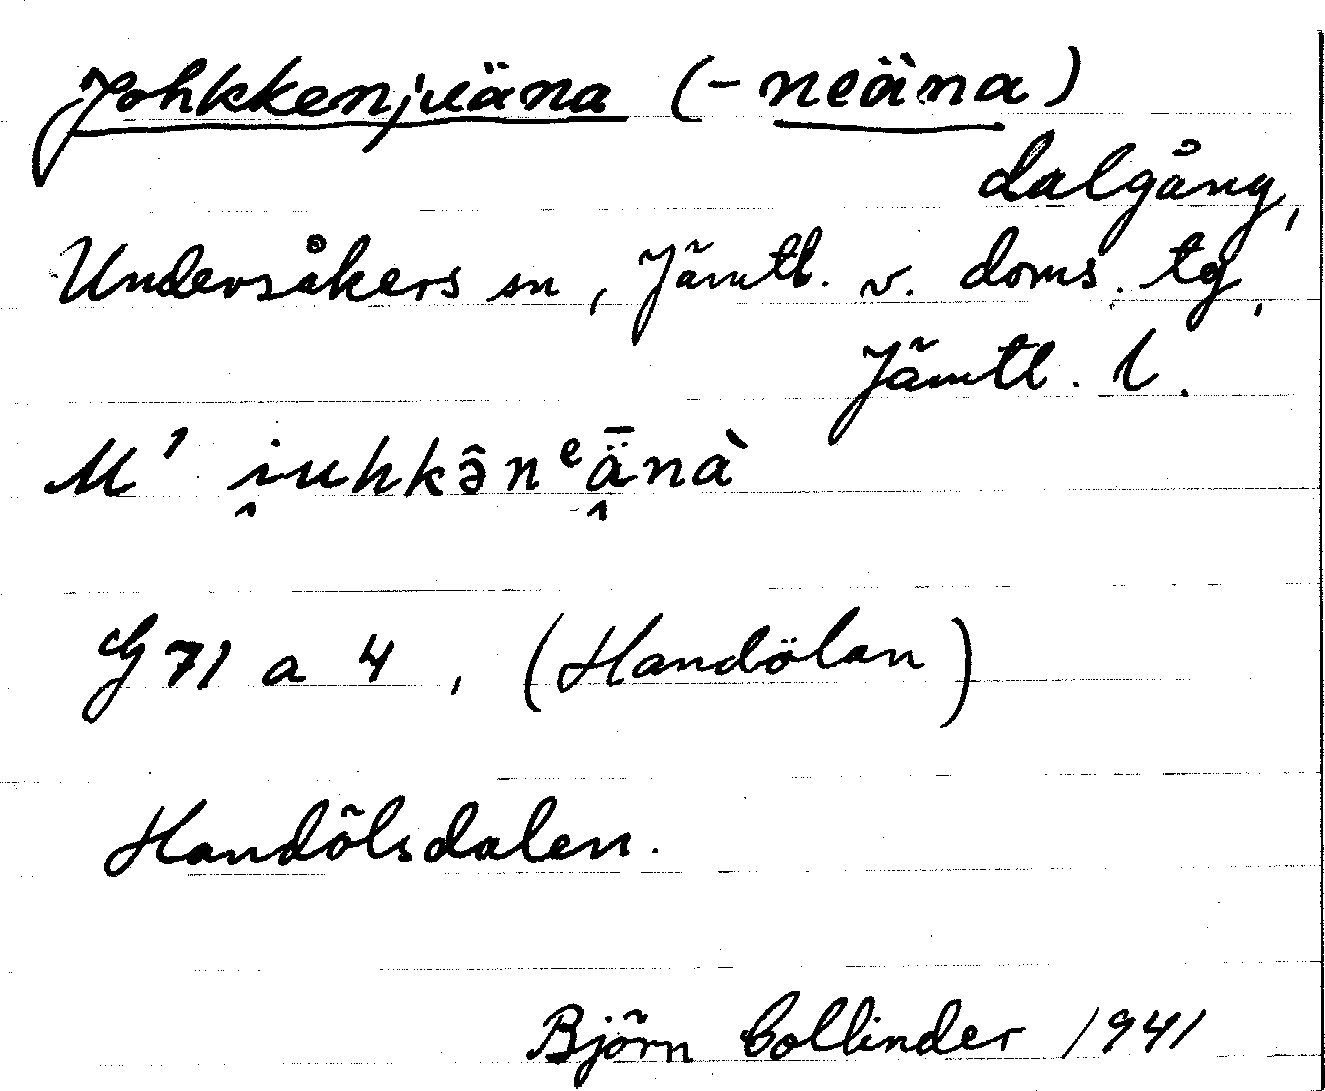 Johkkenjuäna (-neäna)
dalgång,
Undersåkers sn, Jämtl. v. doms. tg,
Jämtl. l.
M' i̭uhkə̂nᵉǟ̭nà
G 71 a 4, (Handölan)
Handölsdalen.
Björn Collinder 1941